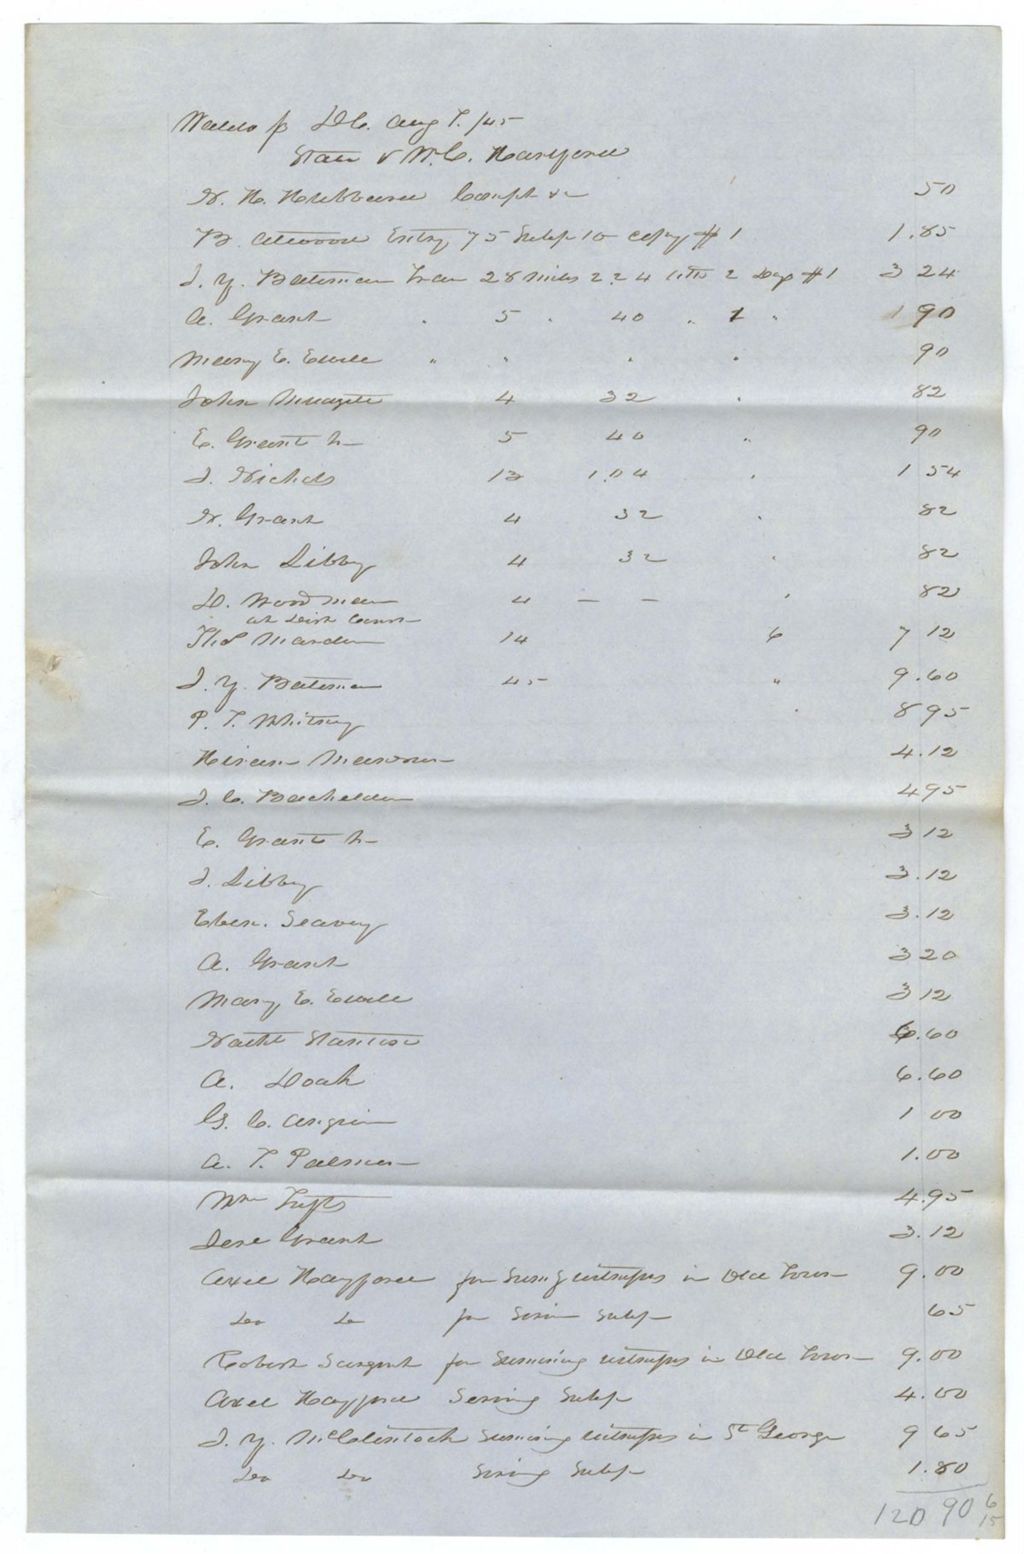 Waldo ss D.C. Aug T. /45
State v W. C. Hayford
N. H. Hubbard Compt &c 50
B. Atwood Entry 75 Subp 10 copy #1 1.85
J. Y. Bateman Trav 28 miles 2.24 atte 2 Day #1 3 24
A. Grant " 5 " 40 " 1 " 90
Mary E. " " " " 90
John 4 32 " 82
E. Grant Jr 5 40 " 90
J. Nichols 13 1.04 " 1 54
N. Grant 4 32 " 82
John Libby 4 32 " 82
D. Woodman 4 — — " 82
at Dist Court
Thos Marden 14 6 7 12
J. Y. Bateman 45 " 9.60
P. T. Whitney 8 95
Hiram 4.12
J. C. Bachelder 4 95
E. Grant Jr 3 12
J. Libby 3.12
Eben. Seavey 3.12
A. Grant 3 20
Mary E. 3 12
Nathl 6.60
A. Doak 6.60
G. C. 1 00
A. T. Palmer 1.00
Wm Tufts 4.95
Jere Grant 3.12
Axel Hayford for Sumg witnesses in Old Town 9.00
Do Do for Servin Subp 65
Robert Sargent for Sumining witnesses in Old Town 9.00
Axel Hayford Serving Subp 4.00
J. Y. McClintock Sumining witnesses in St George 9 65
Do Do Serving Subp 1.80
120 90 6
15